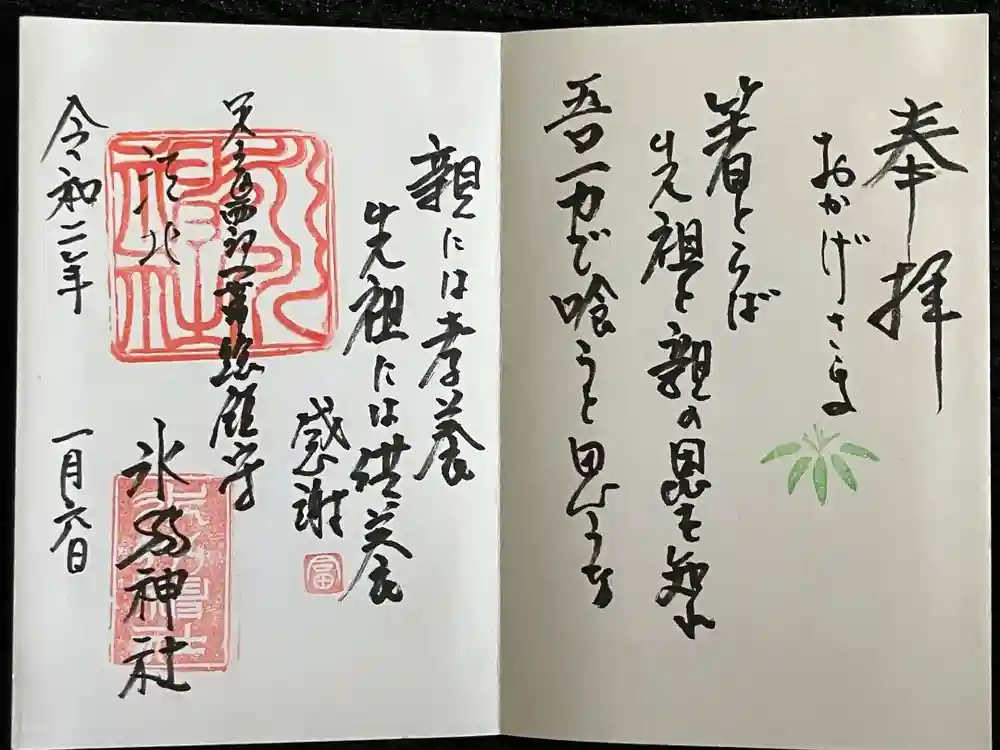 奉拝
おかげさま
箸とらば
先祖と親の恩を知れ
吾一力で喰うと思うな
親には孝養
先祖には供養
感謝
富
総鎮守
氷川神社
令和二年 一月六日